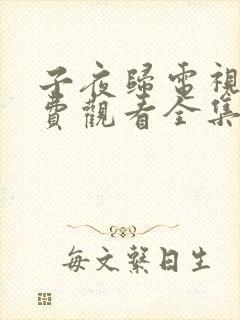 子夜歸電視
費觀看全集
每文繫日生